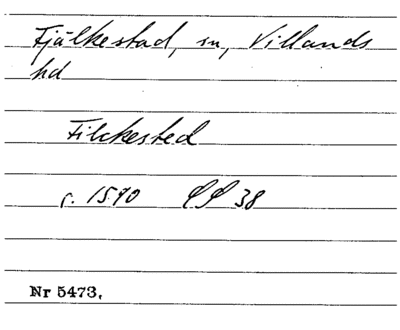 Fjälkestad, sn, Villands
hd
Filckested
c. 1590 38
Nr 5473.